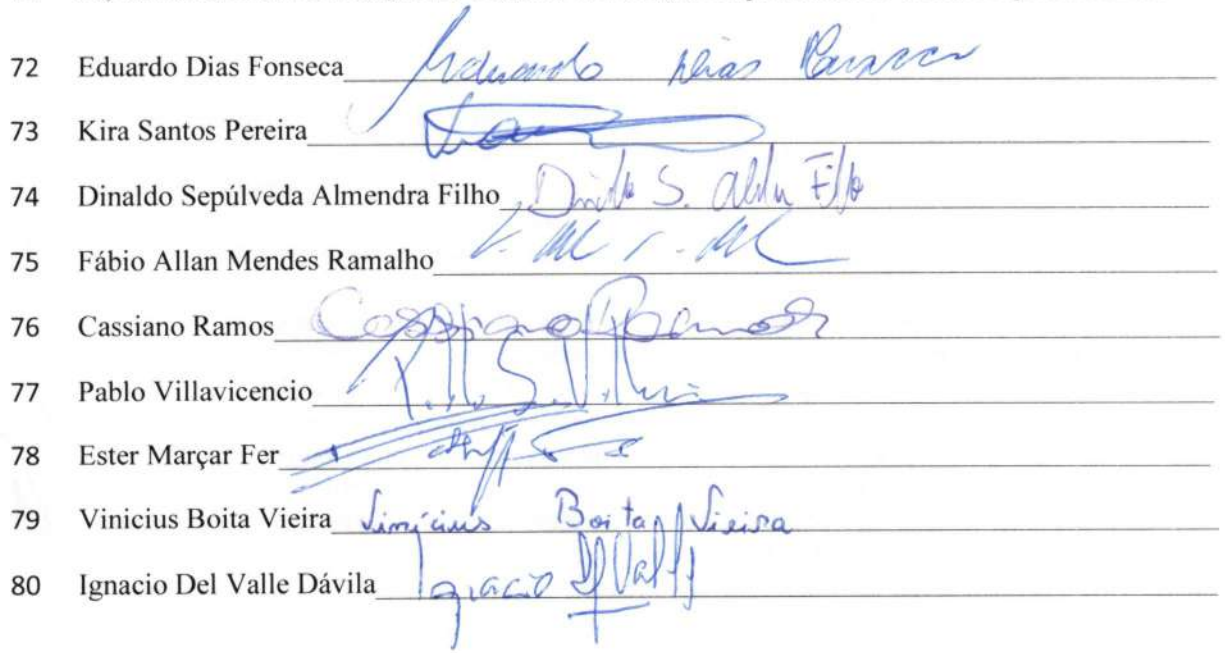 72 Eduardo Dias Fonseca Eduardo Dias
73 Kira Santos Pereira
74 Dinaldo Sepúlveda Almendra Filho S. Filho
75 Fábio Allan Mendes Ramalho
76 Cassiano Ramos Cassiano Ramos
77 Pablo Villavicencio
78 Ester Marçar Fer
79 Vinicius Boita Vieira Vinícius Boita Vieira
80 Ignacio Del Valle Dávila Ignacio